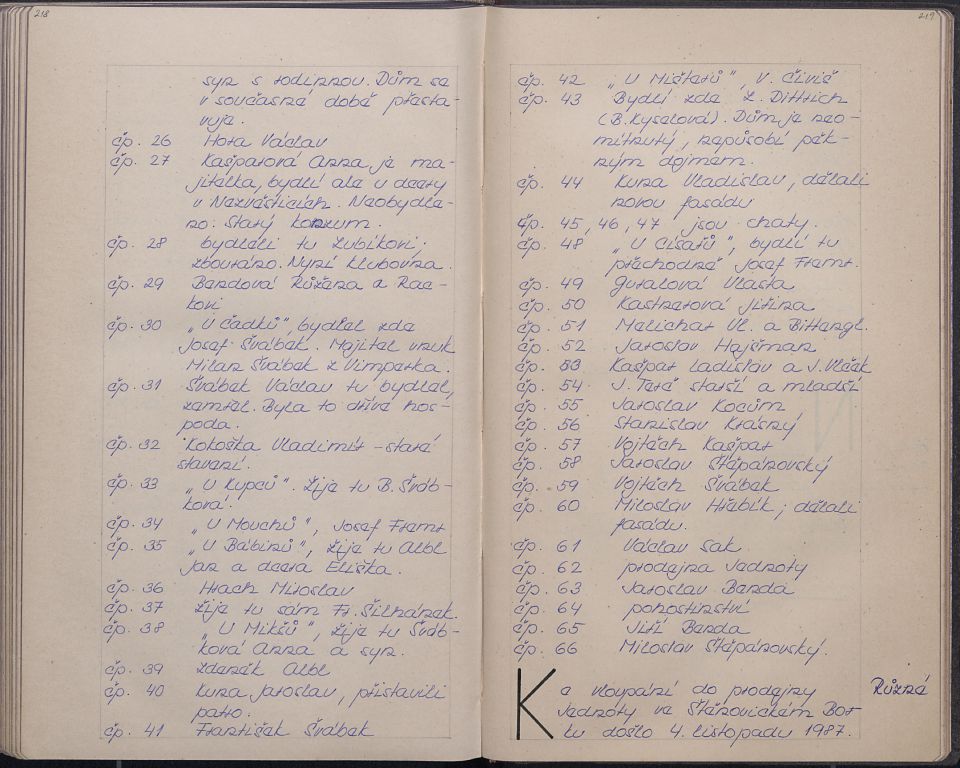 218
syn s rodinnou. Dům se
v současné době přesta-
vuje.
čp. 26 Hora Václav
čp. 27 Kašparová Anna, je ma-
jitelka, bydlí ale u dcery
v Nezvěsticích. Neobydle-
no. Starý konzum.
čp. 28 bydleli tu Zubíkovi.
zbouráno. Nyní klubovna.
čp. 29 Bendová Růžena a Rac-
kovi
čp. 30 „U Čadků", bydlel zde
Josef Švábek. Majitel vnuk
Milan Švábek z Vimperka.
čp. 31 Švábek Václav tu bydlel,
zemřel. Byla to dříve hos-
poda.
čp. 32 Kokoška Vladimír - staré
stavení.
čp. 33 „U Kupců". Žije tu B. Šváb-
ková.
čp. 34 „U Mouchů", Josef Framt
čp. 35 „U Bábinů", žije tu Albl
Jan a dcera Eliška.
čp. 36 Hrach Miroslav
čp. 37 Žije tu sám Fr. Šilhánek.
čp. 38 „U Mikšů", žije tu Šváb-
ková Anna a syn.
čp. 39 Zdeněk Albl
čp. 40 Kuna Jaroslav, přistavili
patro.
čp. 41 František Švábek
219
čp. 42 „U Mišterů", V. Čivič
čp. 43 Bydlí zde Z. Dittrich
(B. Kyselová). Dům je neo-
mítnutý, nepůsobí pěk-
ným dojmem.
čp. 44 Kuna Vladislav, dělali
novou fasádu
čp. 45, 46, 47 jsou chaty.
čp. 48 „U Císařů", bydlí tu
přechodně Josef Framt.
čp. 49 Guralová Vlasta
čp. 50 Kastnerová Jiřina
čp. 51 Melichar Vl. a Bittengl.
čp. 52 Jaroslav Hajšman
čp. 53 Kašpar Ladislav a J. Vlček
čp. 54 J. Terč starší a mladší
čp. 55 Jaroslav Kocům
čp. 56 Stanislav Krásný
čp. 57 Vojtěch Kašpar
čp. 58 Jaroslav Štěpánovský
čp. 59 Vojtěch Švábek
čp. 60 Miloslav Hřebík; dělali
fasádu.
čp. 61 Václav Sak
čp. 62 prodejna Jednoty
čp. 63 Jaroslav Benda
čp. 64 pohostinství
čp. 65 Jiří Benda
čp. 66 Miloslav Štěpánovský.
Ke vloupání do prodejny Různé
Jednoty ve Štěnovickém Bor-
ku došlo 4. listopadu 1987.